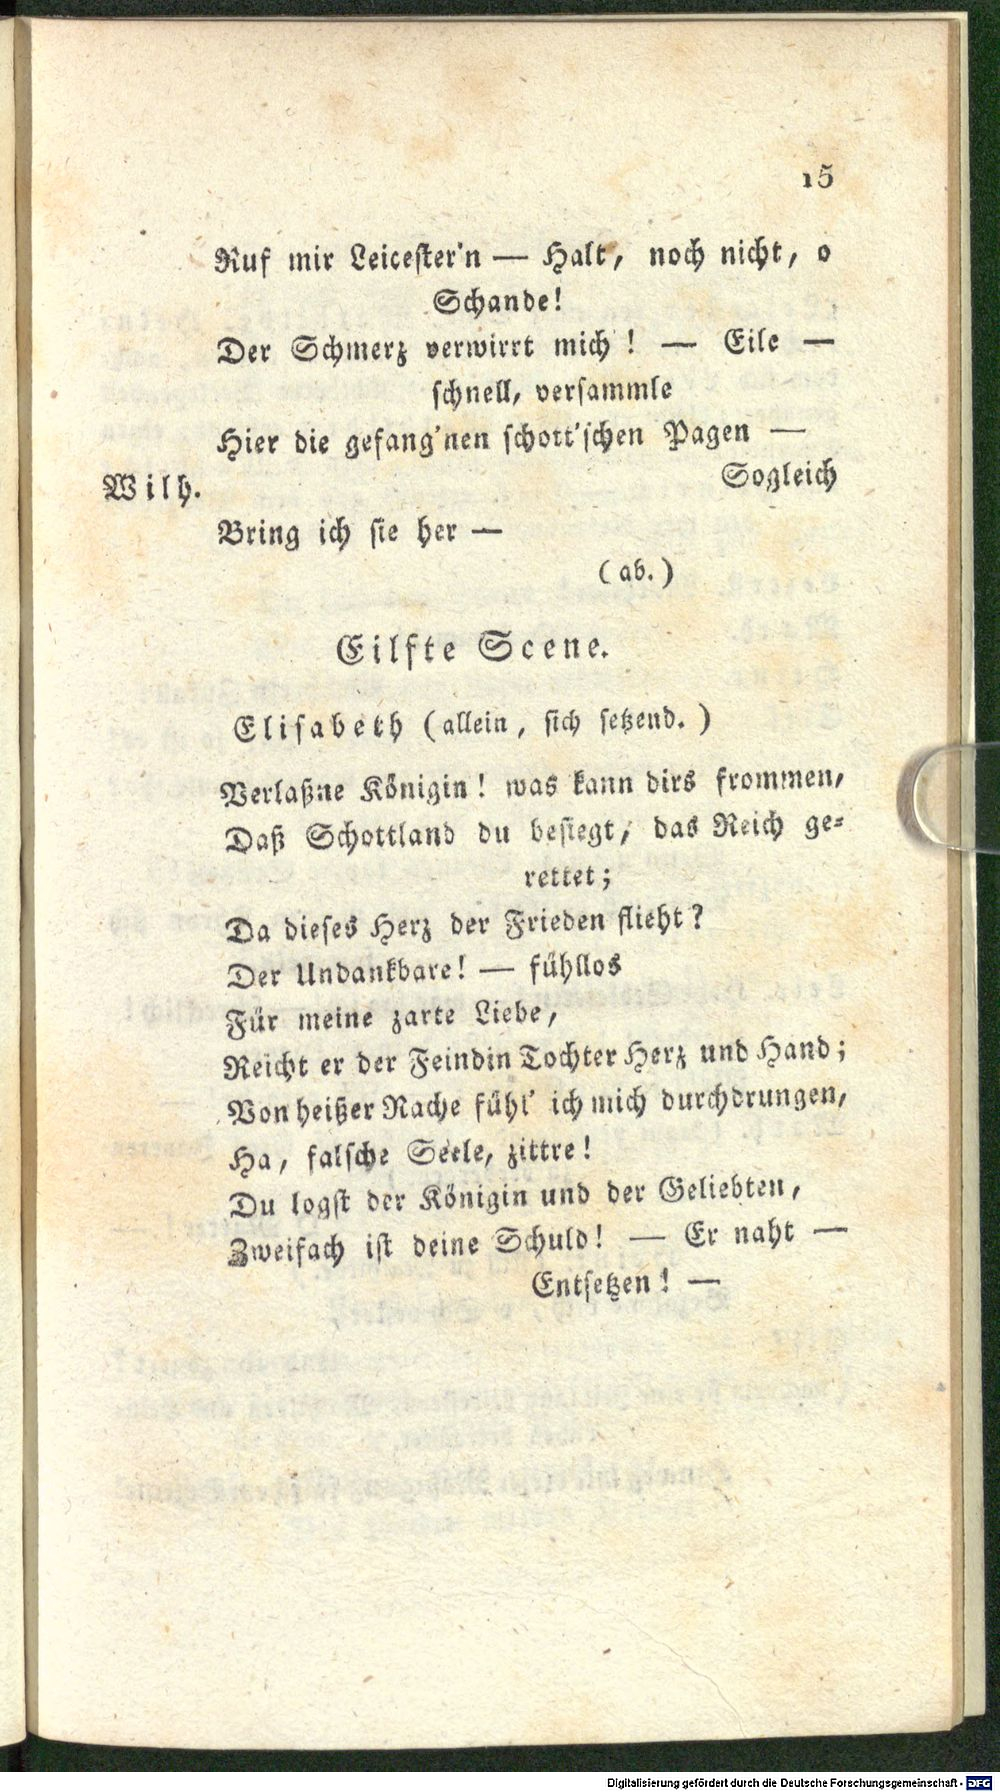 15
Ruf mir Leicester'n — Halt, noch nicht, o
Schande!
Der Schmerz verwirrt mich! — Eile —
schnell, versammle
Hier die gefang'nen schott'schen Pagen —
Wilh. Sogleich
Bring ich sie her —
(ab.)
Eilfte Scene.
Elisabeth (allein, sich setzend.)
Verlaßne Königin! was kann dirs frommen,
Daß Schottland du besiegt, das Reich ge-
rettet;
Da dieses Herz der Frieden flieht?
Der Undankbare! — fühllos
Für meine zarte Liebe,
Reicht er der Feindin Tochter Herz und Hand;
Von heißer Rache fühl' ich mich durchdrungen,
Ha, falsche Seele, zittre!
Du logst der Königin und der Geliebten,
Zweifach ist deine Schuld! — Er naht —
Entsetzen! —
Digitalisierung gefördert durch die Deutsche Forschungsgemeinschaft - DFG